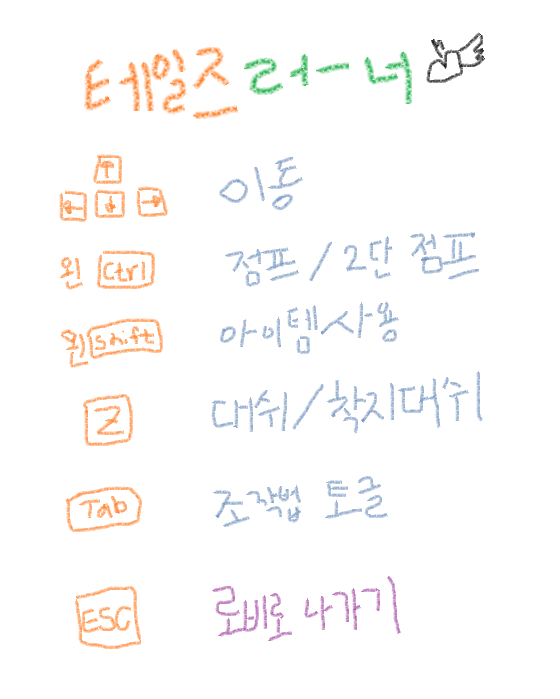 테일즈 러너
↑
← ↓ → 이동
왼 Ctrl 점프 / 2단 점프
왼 Shift 아이템사용
Z 대쉬/착지대쉬
Tab 조작법 토글
ESC 로비로 나가기